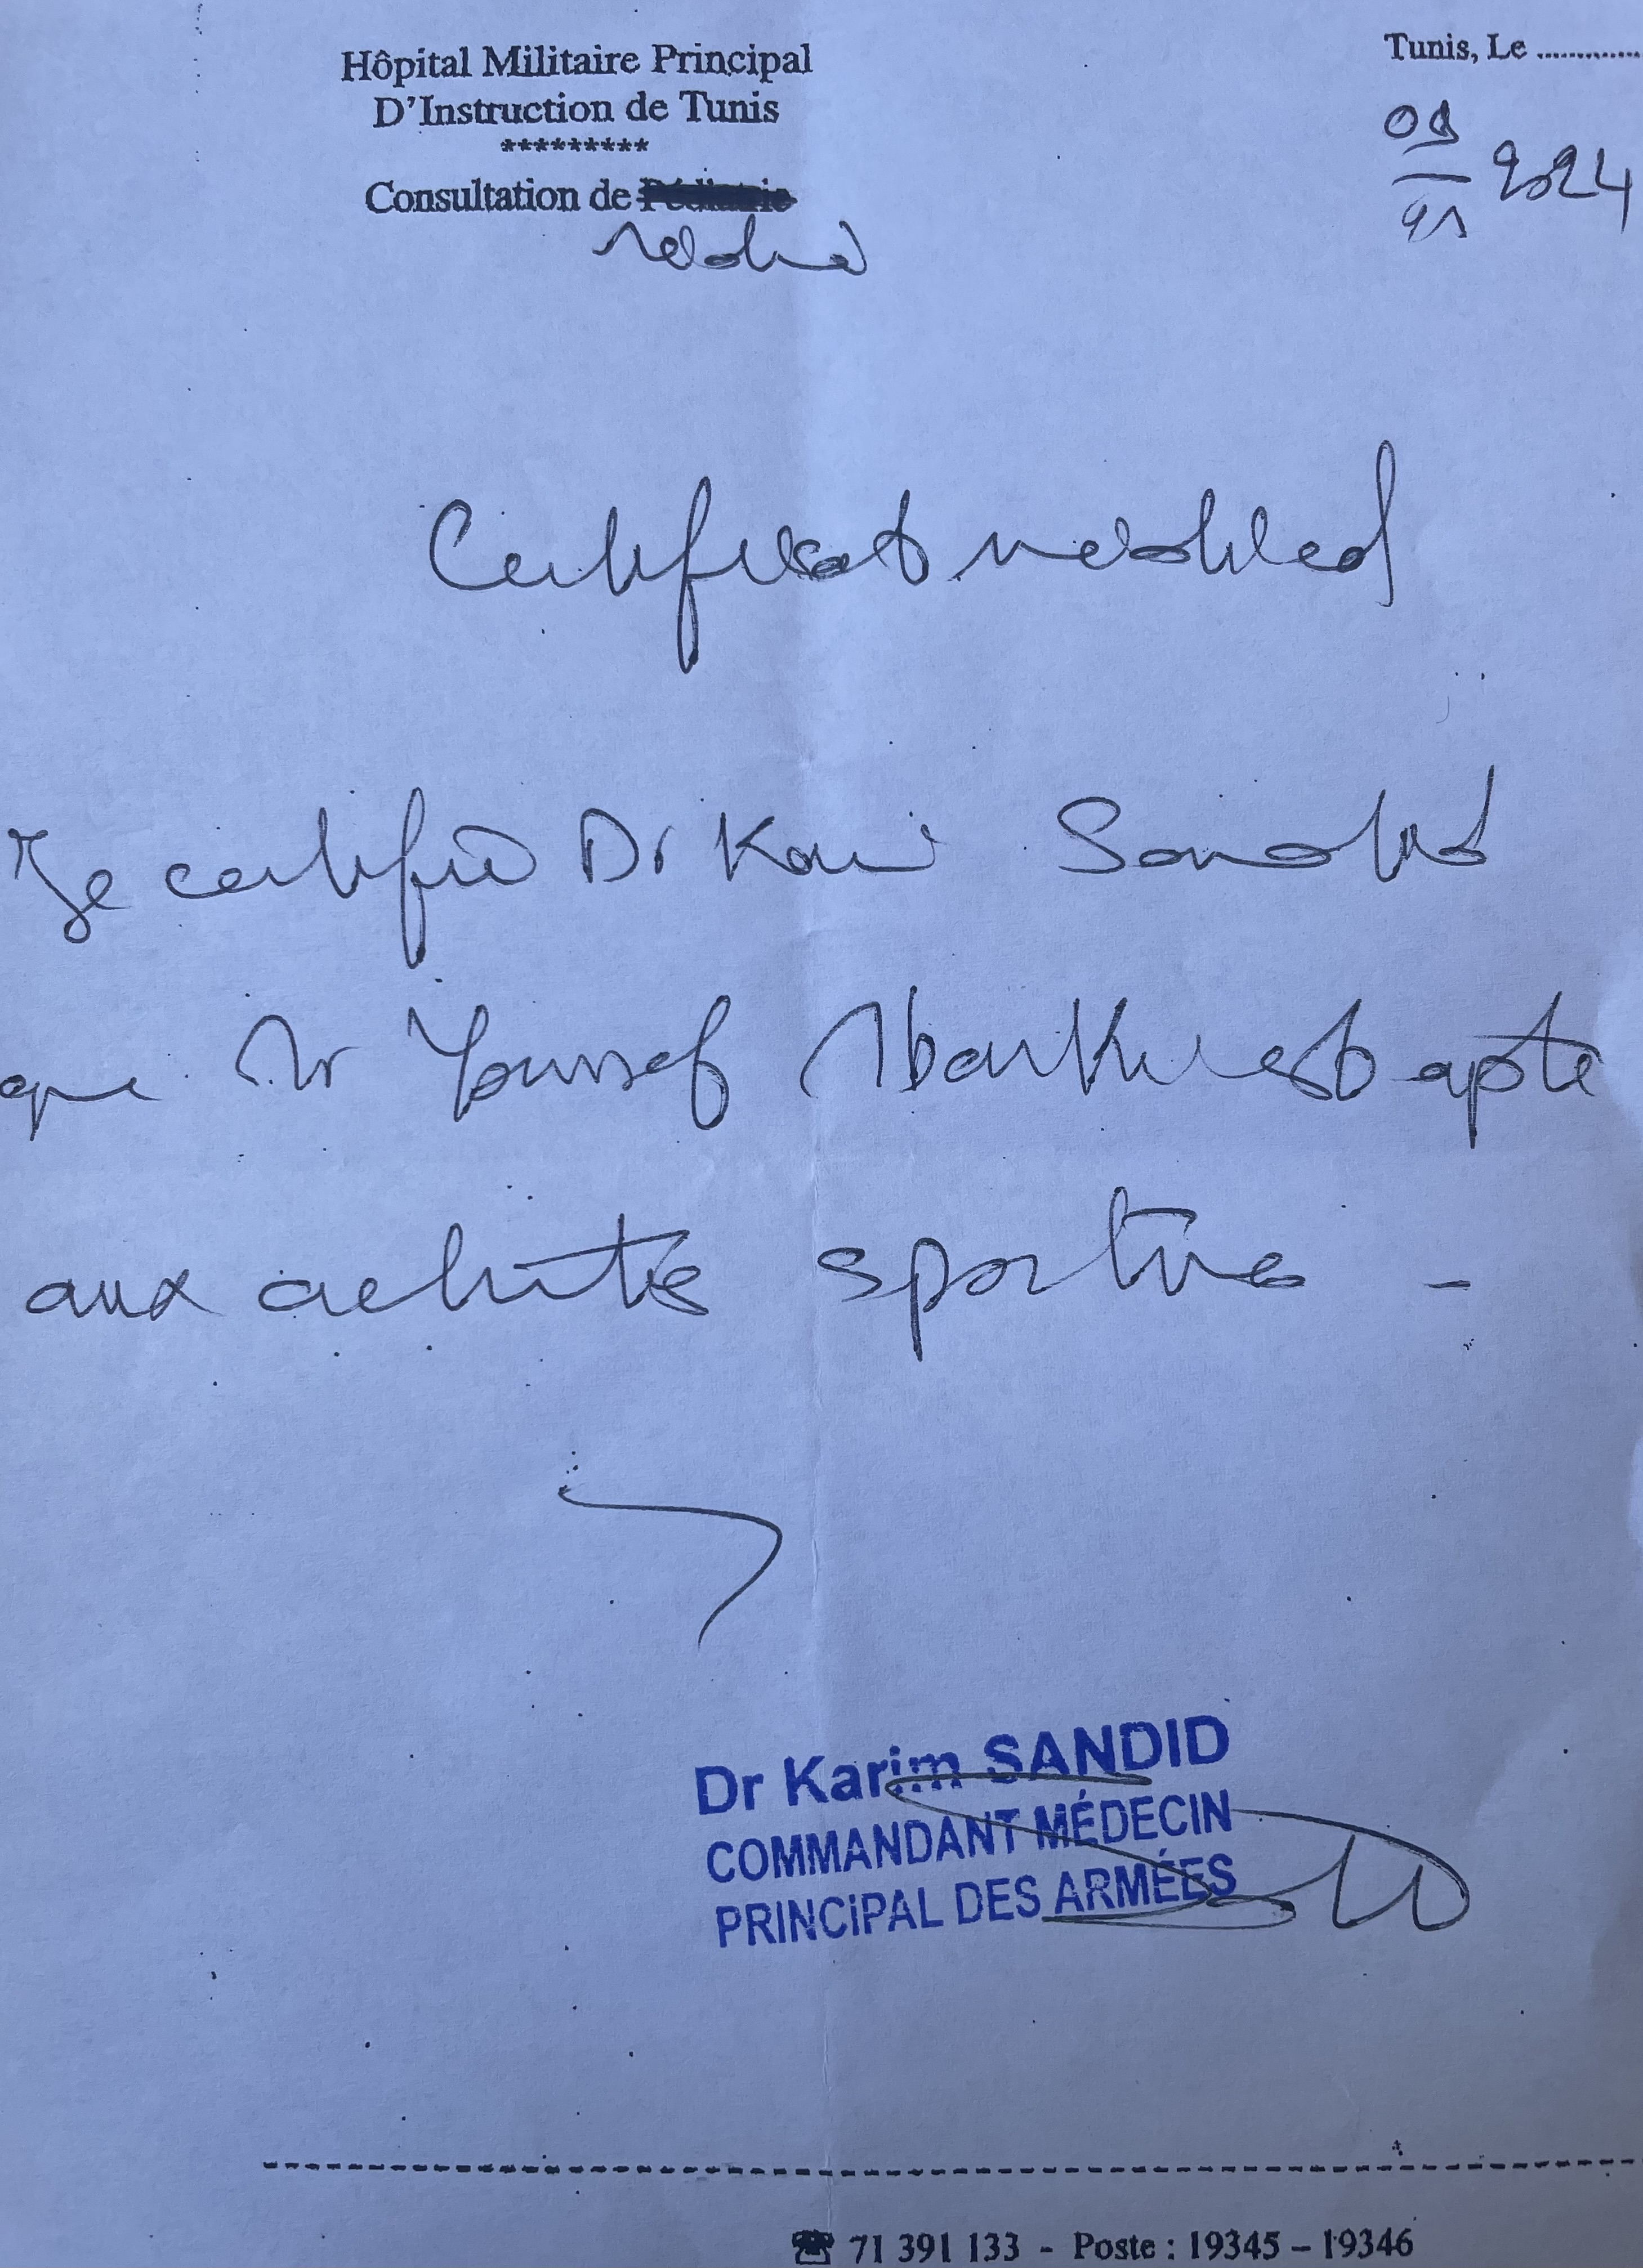 Hôpital Militaire Principal
D'Instruction de Tunis
*********
Consultation de Pédiatrie
Tunis, Le .............
09
2024
Certificat médical
Je certifie Dr Karim Sandid
que Mr Youssef est apte
aux activités sportives -
Dr Karim SANDID
COMMANDANT MÉDECIN
PRINCIPAL DES ARMÉES
☎ 71 391 133 - Poste : 19345 – 19346